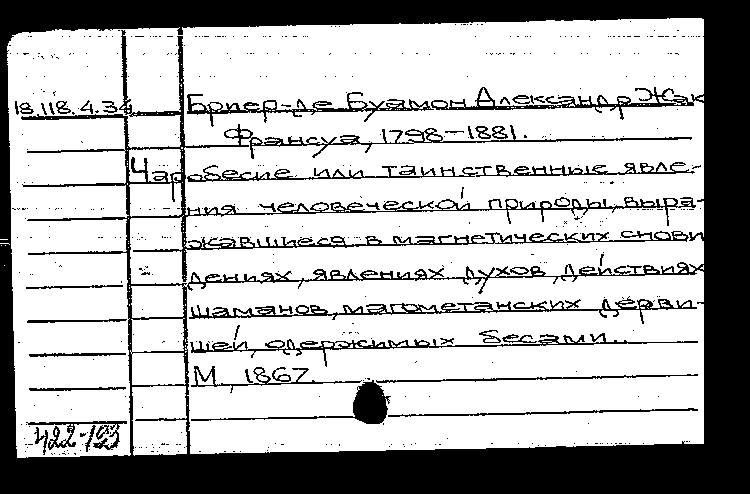 18.118.4.34 Бриер-де Буамон Александр Жак
Франсуа, 1798-1881.
Чаробесие или таинственные явле-
ния человеческой природы, выра-
жавшиеся в магнетических снови
дениях, явлениях духов, действиях
шаманов, магометанских дерви-
шей, одержимых бесами..
М., 1867.
422-123